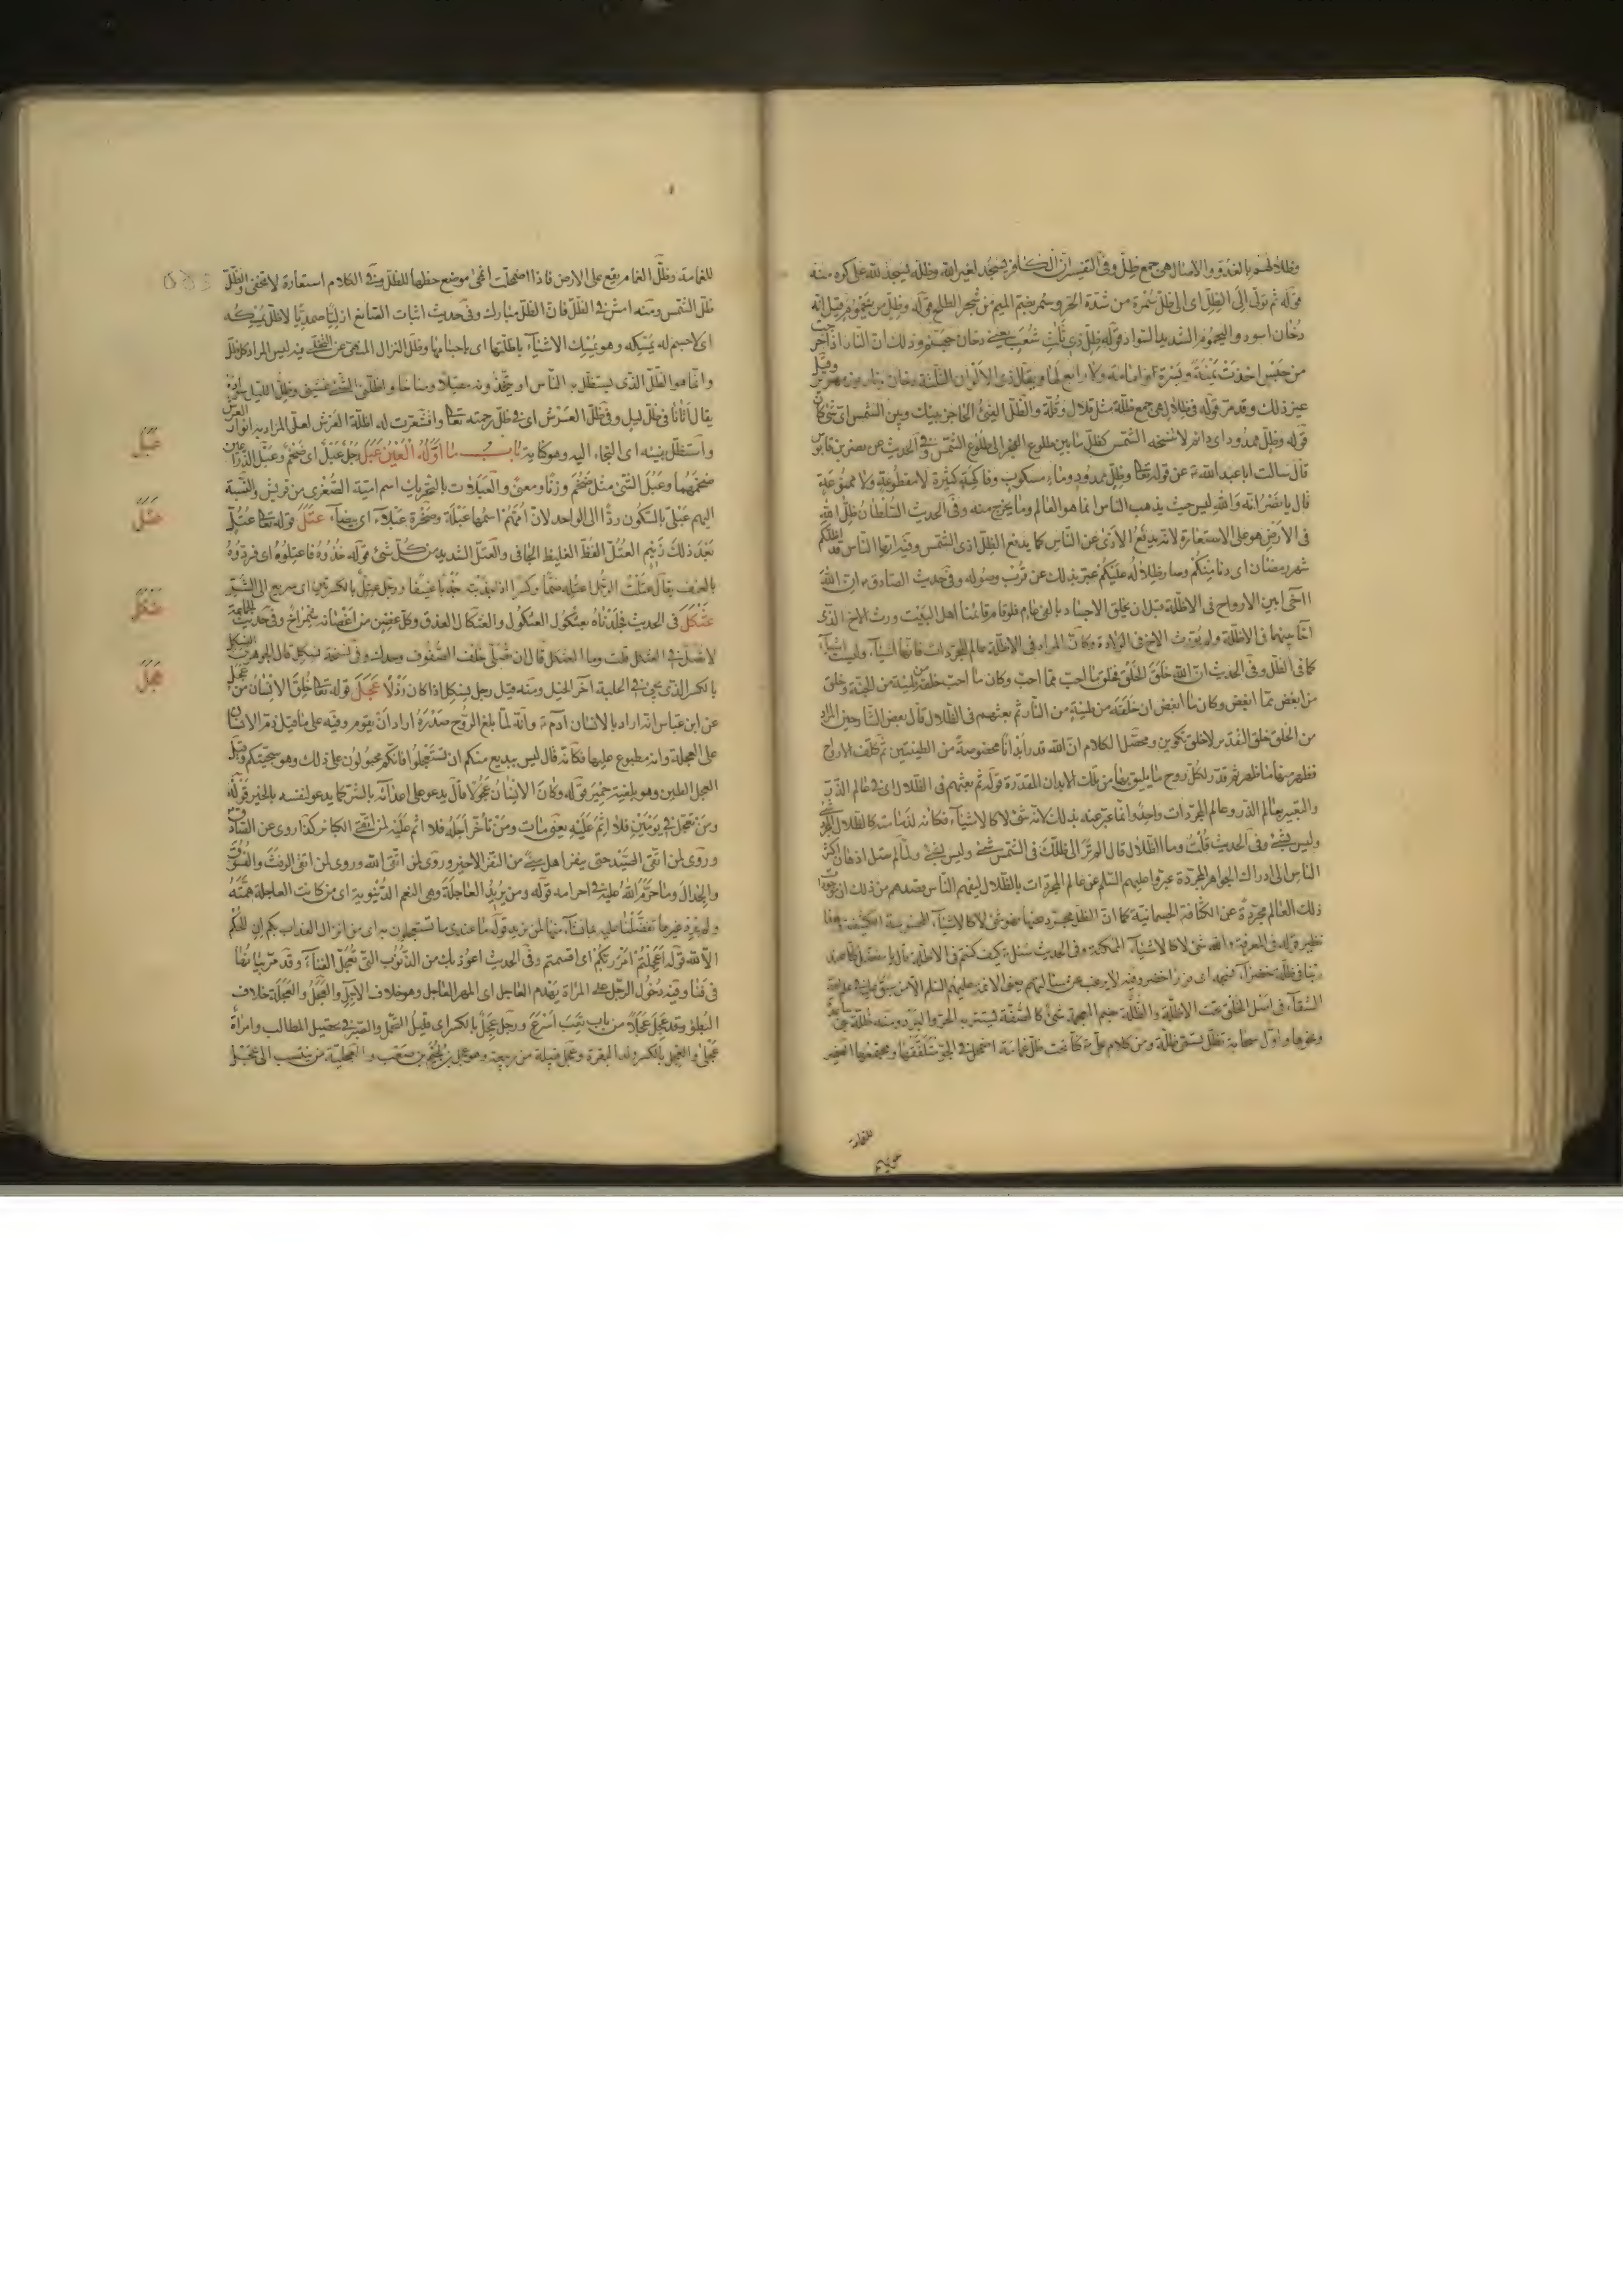 وظلالهم بالغدو والاصال هى جمع ظل وفى التفسير ان الكافر يسجد لغير الله وظله يسجد لله على كره منه
قوله ثم تولى الى الظل اى الى ظل سمرة من شدة الحر وسمر بضم الميم من شجر الطلح قوله وظل من يحموم قيل انه
دخان اسود واليحموم الشديد السواد قوله ظل ذى ثلث شعب يعنى دخان جهنم وذلك ان النار اذا خرجت
من حبس اخذت يمنة ويسرة او امامه ولا رابع لها ويقال ذى الالوان الثلثة دخان ونار وزمهرير وقيل
غير ذلك وقد مر قوله فى ظلال هى جمع ظلة مثل قلال وقلة والظل الفىء الحاجز بينك وبين الشمس اى شىء كان
قوله وظل ممدود اى دائم لا تنسخه الشمس كظل ما بين طلوع الفجر الى طلوع الشمس وفى الحديث عن نصر بن قابوس
قال سالت ابا عبد الله ع عن قوله تعالى وظل ممدود وماء مسكوب وفاكهة كثيرة لا مقطوعة ولا ممنوعة
قال يا نصر انه والله ليس حيث يذهب الناس انما هو العالم وما يخرج منه وفى الحديث السلطان ظل الله
فى الارض هو على الاستعارة لانه يدفع الاذى عن الناس كما يدفع الظل اذى الشمس وفيه ايها الناس قد اظلكم
شهر رمضان اى دنا منكم وصار ظلاله عليكم عبر بذلك عن قرب وصوله وفى حديث الصادق ع ان الله
اخى بين الارواح فى الاظلة قبل ان يخلق الاجساد بالفى عام فلو قام قائمنا اهل البيت ورث الاخ الذى
اخا بينهما فى الاظلة ولم يورث الاخ فى الولادة وكان المراد فى الاظلة عالم المجردات فانها اشياء وليست باشياء
كما فى الظل وفى الحديث ان الله خلق الخلق فخلق ما احب مما احب وكان ما احب خلقه من طينة من الجنة وخلق
من ابغض مما ابغض وكان ما ابغض ان خلقه من طينة من النار ثم بعثهم فى الظلال قال بعض الشارحين المراد
من الخلق خلق التقدير لا خلق تكوين ومحصل الكلام ان الله قدر ابدانا مخصوصة من الطينتين ثم كلف الارواح
فظهر منها ما ظهر ثم قدر لكل روح ما يليق بها من تلك الابدان المقدرة قوله ثم بعثهم فى الظلال اى فى عالم الذر
والتعبير بعالم الذر وعالم المجردات واحد وانما عبر عنه بذلك لانه شىء لا كالاشياء فكانه لذمامته كالظلال المجرد شىء
وليس بشىء وفى الحديث قلت وما الظلال قال الم تر الى ظلك فى الشمس شىء وليس بشىء ولما لم تصل اذهان اكثر
الناس الى ادراك الجواهر المجردة عبروا عليهم السلم عن عالم المجردات بالظلال ليفهم الناس وقصدهم من ذلك ان
ذلك العالم مجردة عن الكثافة الجسمانية كما ان الظل مجرد عنها فهو شىء لا كالاشياء المحسوسة الكثيفة وهذا
نظير قوله فى المعرفة والله شىء لا كالاشياء الممكنة وفى الحديث سئل ع كيف كنتم فى الاظلة قال يا مفضل كنا عند
ربنا فى ظلة خضراء
السقاء فى اسفل الخلق تحت الاظلة والظلة بضم المعجمة شىء كالصفة يستتر به الحر والبرد ومنه ظلة
ونحوها واول سحابة تظل يسمى ظلة ومن كلام على ع كنا تحت ظل غمامة اضمحل فى الجو متلفقها ومجتمعها الضمير
للغمامة
للغمامة وظل الغمام يقع على الارض فاذا اضمحلت انمحى موضع حظها للظل وفى الكلام استعارة لا تخفى الظل
ظل الشمس ومنه امش فى الظل فان الظل مبارك وفى حديث اثبات الصانع ازليا صمديا لا ظل يمسكه
اى لا جسم له يمسكه وهو يمسك الاشياء باظلتها اى باجسامها وظل النزال المنهى عن التخلى فيه ليس المراد كل ظل
وانما هو الظل الذى يستظل به الناس او يتخذونه مقيلا ومناخا واظلنى الشىء غشينى وظل الليل سواده
يقال اتانا فى ظل الليل وفى ظل العرش اى فى ظل رحمته تعالى واقشعرت له اظلة العرش لعل المراد به انوار العرش
واستظل بفيئه اى التجاء اليه وهو كناية باب ما اوله العين عبل رجل عبل اى ضخم وعبل الذراعين
ضخمهما وعبل الشىء مثل ضخم وزنا ومعنى والعبلات بالتحريك اسم امية الصغرى من قريش والنسبة
اليهم عبلى بالسكون ردا الى الواحد لان امهم اسمها عبلة وصخرة عبلاء اى بيضاء عتل قوله تعالى عتل
بعد ذلك زنيم العتل الفظ الغليظ الجافى والعتل الشديد من كل شىء قوله خذوه فاعتلوه اى فردوه
بالعنف يقال عتلت الرجل اعتله ضما وكسرا اذا جذبته جذبا عنيفا ورجل عتل بالكسر اى سريع الى الشر
عثكل فى الحديث فجلدناه بعثكول العثكول والعثكال العذق وكل غصن من اغصانه شمراخ وفى حديث الجماعة
لا تصل فى العثكل قلت وما العثكل قال ان تصلى خلف الصفوف وحدك وفى نسخة فسكل قال الجوهرى الفسكل
بالكسر الذى يجىء فى الحلبة آخر الخيل ومنه قيل رجل فسكل اذا كان رذلا عجل قوله تعالى خلق الانسان من عجل
عن ابن عباس انه اراد بالانسان ادم ع وانه لما بلغ الروح صدره اراد ان يقوم وفيه على ما قيل ذم الانسان
على العجلة وانه مطبوع عليها فكانه قال ليس ببديع منكم ان تستعجلوا فانكم مجبولون على ذلك وهو سجيتكم وقيل
العجل الطين وهو بلغة حمير قوله وكان الانسان عجولا قال يدعو على اعدائه بالشر كما يدعو لنفسه بالخير قوله
ومن تعجل فى يومين فلا اثم عليه يعنى مات ومن تأخر اجله فلا اثم عليه لمن اتقى الكبائر كذا روى عن الصادق
وروى لمن اتقى الصيد حتى ينفر اهل منى من النفر الاخير وروى لمن اتقى الله وروى لمن اتقى الرفث والفسوق
والجدال وما حرم الله عليه فى احرامه قوله ومن يريد العاجلة وهى النعم الدنيوية اى من كانت العاجلة همته
ولم يرد غيرها تفضلنا عليه بما نشاء منها لمن نريد قوله ما عندى ما تستعجلون به اى من انزال العذاب بكم ان الحكم
الا لله قوله اعجلتم امر ربكم اى اسبقتم وفى الحديث اعوذ بك من الذنوب التى تعجل الفناء وقد مر بيانها
فى فنا وفيه دخول الرجل على المراة يهدم العاجل اى المهر العاجل وهو خلاف الاجل والعجل والعجلة خلاف
البطؤ وقد عجل عجلا من باب تعب اسرع ورجل عجل بالكسر اى قليل التحمل والصبر فى تحصيل المطالب وامراة
عجلى والعجل بالكسر ولد البقرة وعجل قبيلة من ربيعة وهو عجل بن لجيم بن صعب والعجلية من ينتسب الى عجل
عبل
عتل
عثكل
عجل